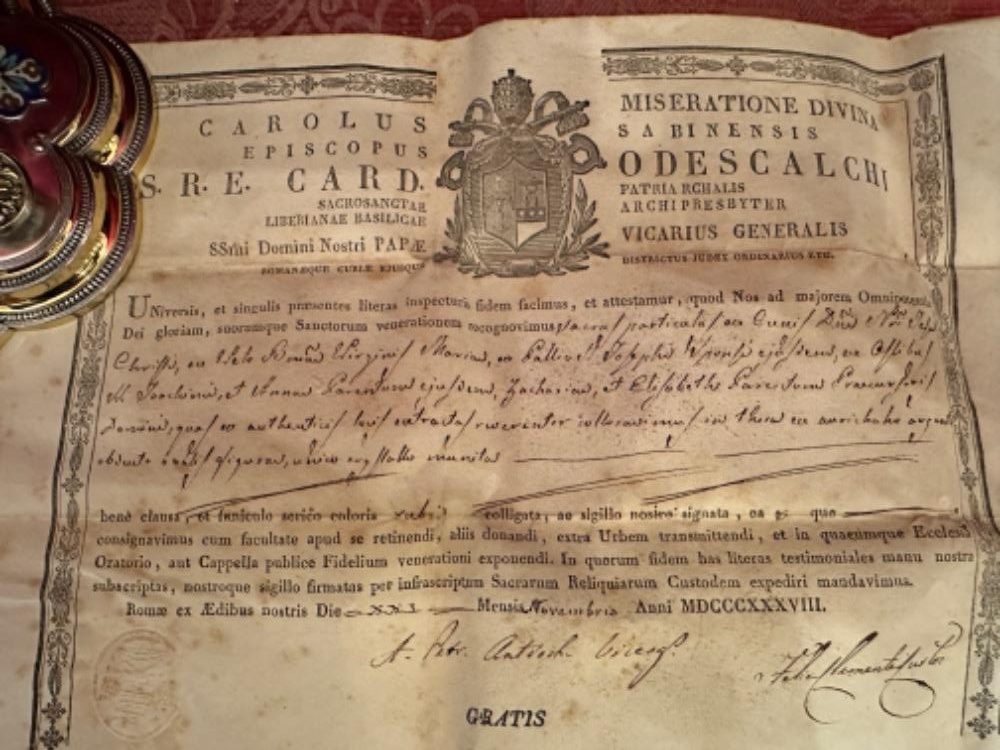 CAROLUS MISERATIONE DIVINA
EPISCOPUS SABINENSIS
S. R. E. CARD. ODESCALCHI
SACROSANCTAE PATRIARCHALIS
LIBERIANAE BASILICAE ARCHIPRESBYTER
SSmi Domini Nostri PAPÆ VICARIUS GENERALIS
ROMANÆQUE CURIÆ EJUSQUE DISTRICTUS JUDEX ORDINARIUS ETC.
Universis, et singulis præsentes literas inspecturis fidem facimus, et attestamur, quod Nos ad majorem Omnipotentis
Dei gloriam, suorumque Sanctorum venerationem recognovimus sacras particulas ex Cunis Dñi Nri Jesu
Christi, ex Velo Virginis Mariæ, ex Pallio S. Josephi Sponsi ejusdem, ex Ossibus
Joachim, et Annæ Parentum ejusdem, Zachariæ, et Elisabeth Parentum Præcursoris
Domini, quas ex authenticis locis extractas reverenter collocavimus in theca ex aurichalco
figuræ, unico crystallo munita
benè clausa, et funiculo serico coloris rubri colligata, ac sigillo nostro signata, ea que
consignavimus cum facultate apud se retinendi, aliis donandi, extra Urbem transmittendi, et in quacumque Ecclesia
Oratorio, aut Cappella publice Fidelium venerationi exponendi. In quorum fidem has literas testimoniales manu nostra
subscriptas, nostroque sigillo firmatas per infrascriptum Sacrarum Reliquiarum Custodem expediri mandavimus.
Romæ ex Ædibus nostris Die XXI Mensis Novembris Anni MDCCCXXXVIII.
A. Patr. Antioch. Vicesg.
Felix Clementi Custos
GRATIS